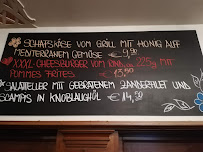 SCHAFSKÄSE VOM GRILL MIT HONIG AUF
MEDITERRANEM GEMÜSE € 9,90
XXXL-CHEESEBURGER VOM RIND 225g MIT
POMMES FRITES € 13,50
SALATTELLER MIT GEBRATENEM ZANDERFILET UND
SCAMPIS IN KNOBLAUCHÖL € 14,50